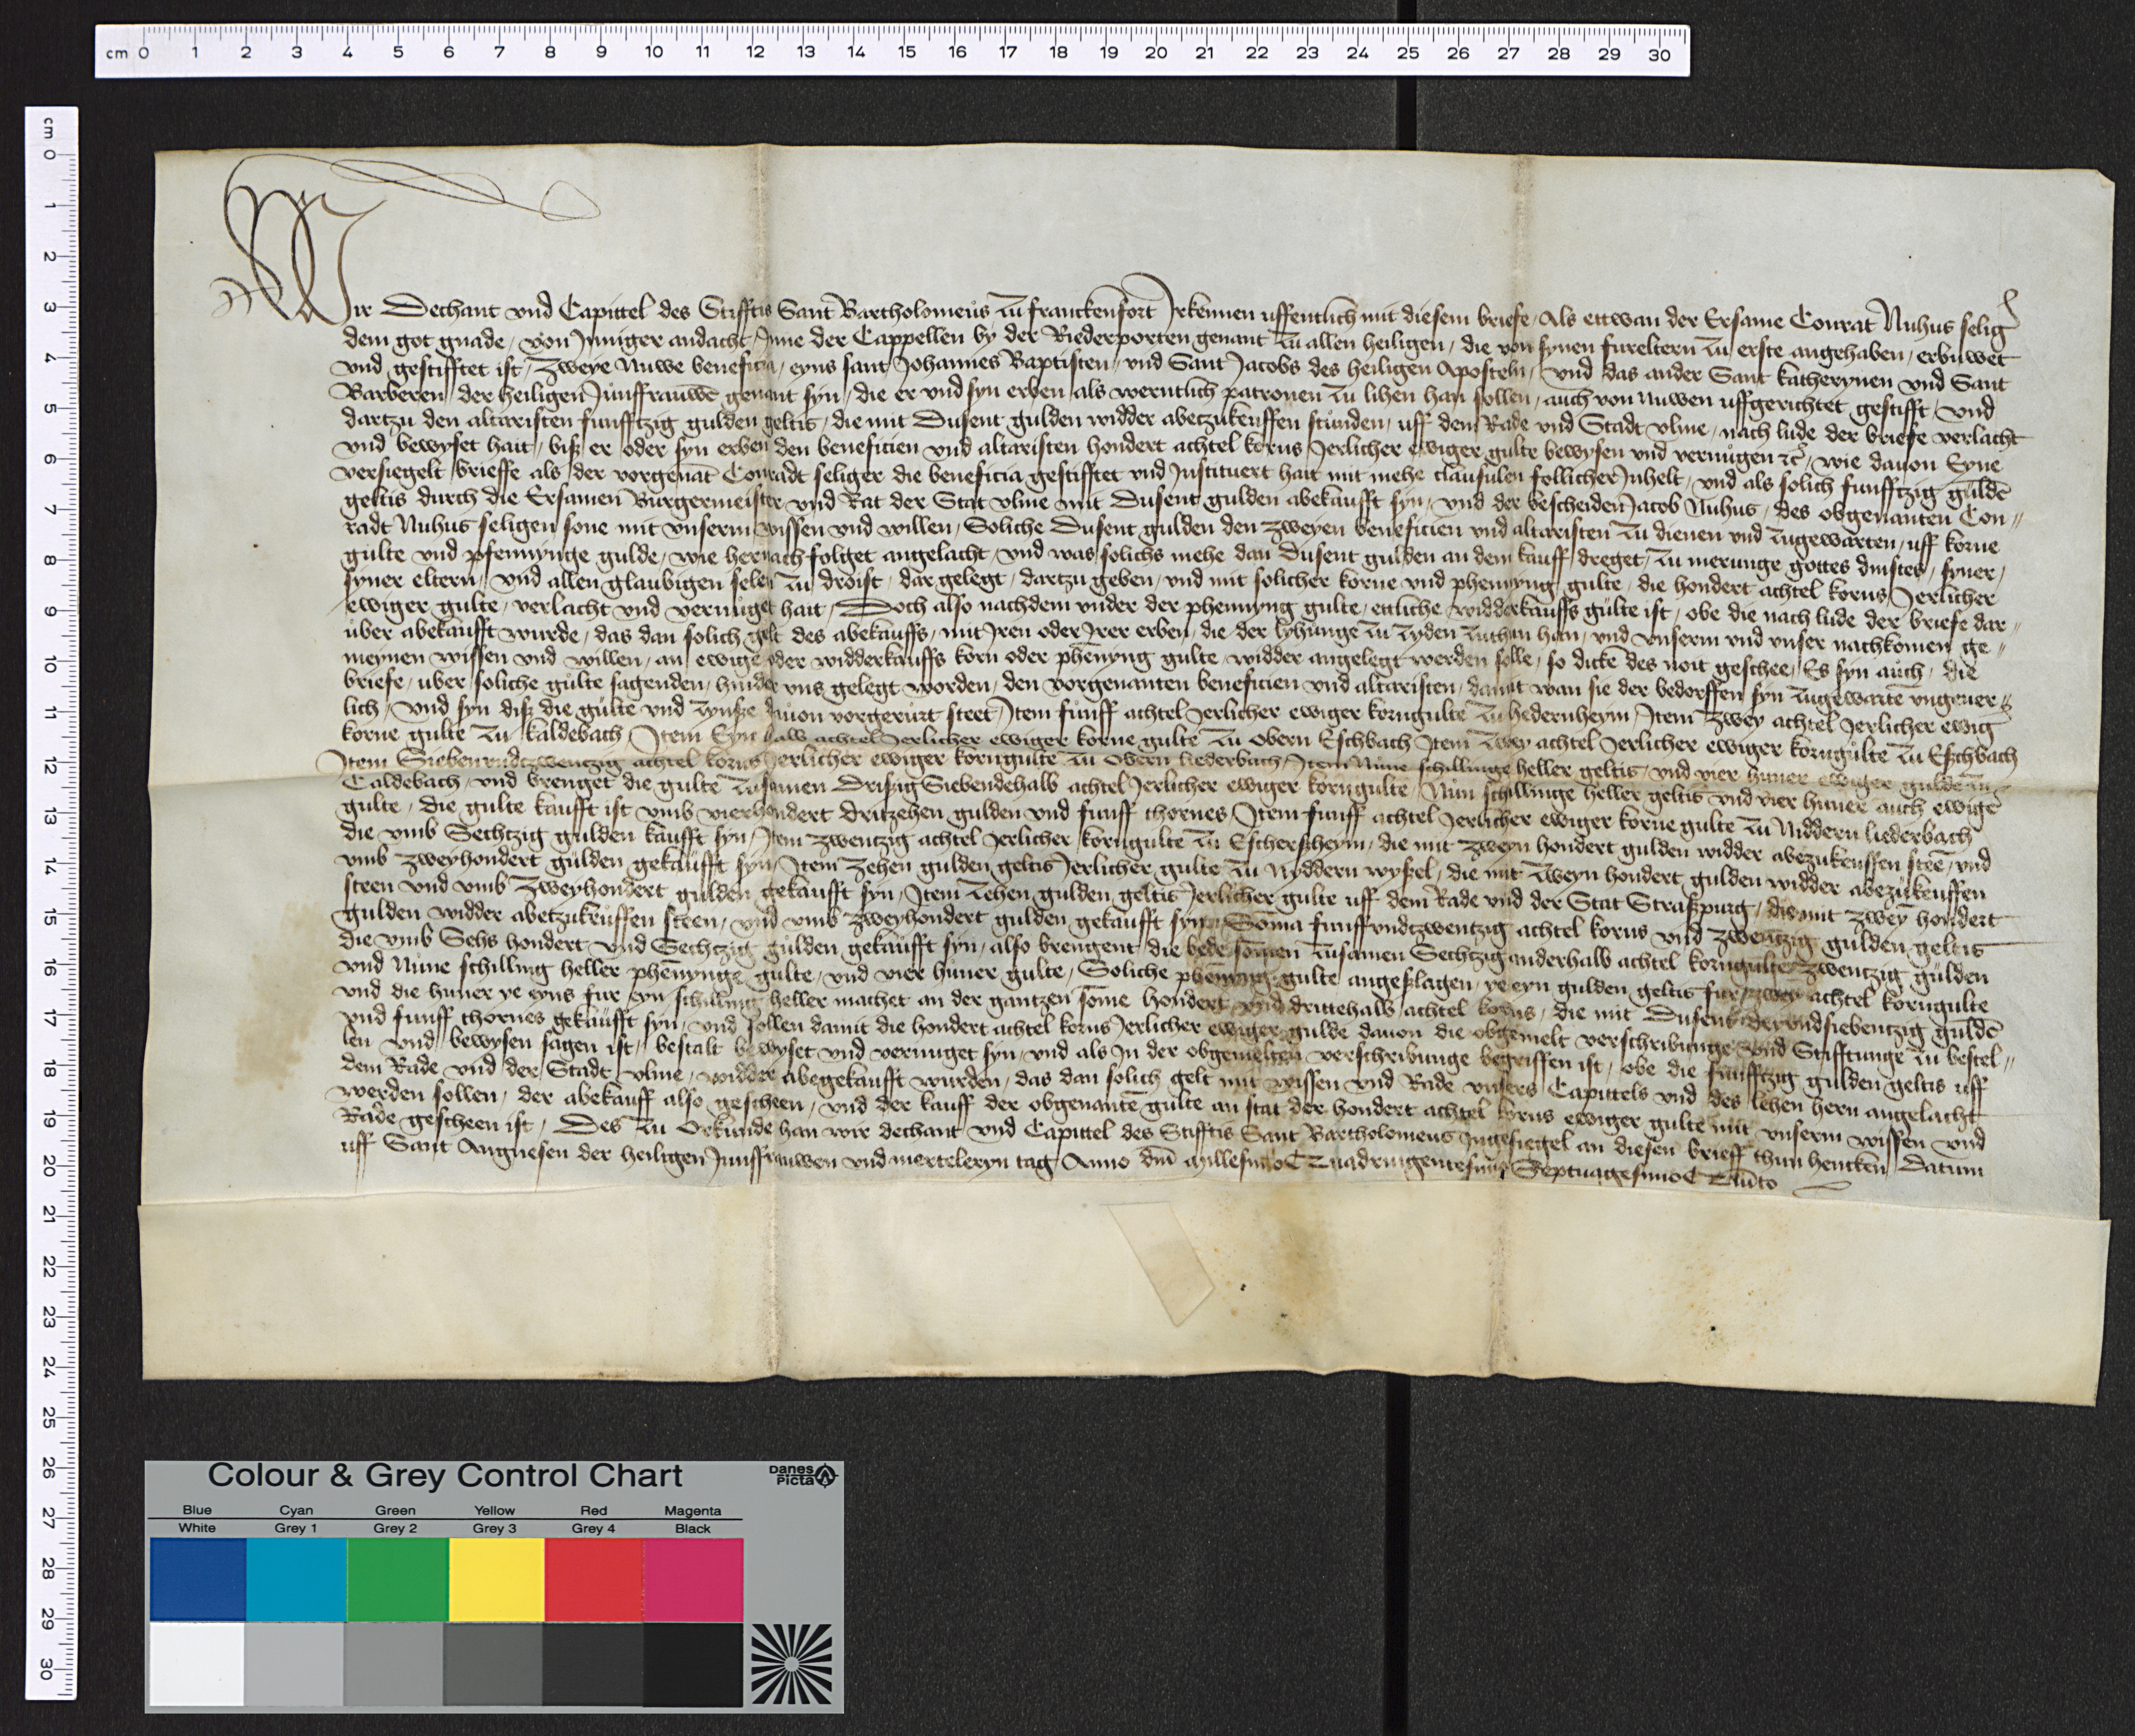 cm 0 1 2 3 4 5 6 7 8 9 10 11 12 13 14 15 16 17 18 19 20 21 22 23 24 25 26 27 28 29 30
cm 0 1 2 3 4 5 6 7 8 9 10 11 12 13 14 15 16 17 18 19 20 21 22 23 24 25 26 27 28 29 30
Wir Dechant vnd Capittel des Stifftis Sant Bartholomeus zu franckenfort Irkennen uffentlich mit diesem briefe, Als ettwan der Ersame Conrat Nuhus selig
dem got gnade, von Inniger andacht, Inne der Cappellen by der Riederporten genant zu allen heiligen, die von synen fureltern zu erste angehaben, erbuwet
vnd gestifftet ist, Zweye Nuwe beneficia, eyns sant Johannes Baptisten, vnd Sant Jacobs des heiligen Aposteln, vnd das ander Sant katherynen vnd Sant
Barberen, der heiligen Junffrauwē genant syn, die er vnd syn erben als werntlich patronen zu lihen han sollen, auch von nuwen uffgerichtet gestifft, vnd
dartzu den altaristen funfftzig gulden geltis, die mit Dusent gulden widder abetzukeuffen stunden, uff dem Rade vnd Stadt vlme, nach lude der briefe verlacht
vnd bewyset hait, biß er oder syn erben den beneficien vnd altaristen hondert achtel korns Jerlicher ewiger gulte bewysen vnd vernugen ꝛc̄, wie dauon Eyne
versiegelt brieffe als der vorgenāt Conradt seliger die beneficia gestifftet vnd Instituert hait mit mehe clausulen follicher Inhelt, vnd als solich funfftzig guldē
geltis durch die Ersamen Burgermeister vnd Rat der Stat vlme mit Dusent gulden abekaufft syn, vnd der bescheiden Jacob Nuhus, des obgenanten Con„
radt Nuhus seligen sone mit vnserm wissen vnd willen, Soliche Dusent gulden den zweyen beneficien vnd altaristen zu dienen vnd zugewarten, uff korne
gulte vnd pfennynge gulde, wie hernach folget angelacht, vnd was solichs mehe dan Dusent gulden an dem kauff dreget, zu merunge gottes dinstes, syner,
syner eltern, vnd allen glaubigen selen zu droist, dar gelegt, dartzu geben, vnd mit solicher korne vnd phennyng gulte, die hondert achtel korns, Jerlicher
ewiger gulte, verlacht vnd vernuget hait, Doch also nachdem vnder der phennyng gulte, ettliche widderkauffs gulte ist, obe die nach lude der briefe dar„
uber abekaufft wurde, das dan solich gelt des abekauffs, mit Iren oder Irer erben, die der lyhunge zu zyden zuthun han, vnd vnserm vnd vnser nachkomen ge„
meynen wissen vnd willen, an ewige oder widderkauffs korn oder phēnyng gulte, widder angelegt werden solle, so dicke des noit geschee, Es syn auch, die
briefe, uber soliche gulte sagenden, hinder vns gelegt worden, den vorgenanten beneficien vnd altaristen, damit wan sie der bedorffen syn zugewartē vngeuer„
lich, vnd syn diß die gulte vnd zynße dauon vorgerurt steet, Item funff achtel Jerlicher ewiger korngulte zu hedernheym, Item zwey achtel Jerlicher ewig
korne gulte zu kaldebach, Item Eyn halb achtel Jerlicher ewiger korne gulte zu Obern Eschbach Item zwey achtel Jerlicher ewiger korngulte zu Eschbach
Item Siebenvndtzwentzig achtel korns Jerlicher ewiger korngulte zu Obern liederbach, Item Nune schillinge heller geltis, vnd vier huner ewiger gulde zu
Caldebach, vnd brenget die gulte zusamen Drißig Siebendehalb achtel Jerlicher ewiger korngulte, Nun schillinge heller geltis vnd vier huner auch ewige
gulte, die gulte kaufft ist vmb vierhondert dritzehen gulden vnd funff thornes Item funff achtel Jerlicher ewiger korne gulte zu Niddern liederbach
die vmb Sechtzig gulden kaufft syn, Item zwentzig achtel Jerlicher korngulte zu Escherßheym, die mit zweyn hondert gulden widder abezukeuffen steē, vnd
vmb zweyhondert gulden gekaufft syn, Item Zehen gulden geltis Jerlicher gulte zu Nyddern wyßel, die mit zweyn hondert gulden widder abezukeuffen
steen vnd vmb zweyhondert gulden gekaufft syn, Item zehen gulden geltis Jerlicher gulte uff dem Rade vnd der Stat Straßpurg, die mit zweȳ hondert
gulden widder abetzukeuffen steen, vnd vmb zweyhondert gulden gekaufft syn, Soma funffvndtzwentzig achtel korns vnd zwentzig gulden geltis
die vmb Sehs hondert vnd Sechtzig gulden gekaufft syn, also brengent die bede sōmen zusamen Sechtzig anderhalb achtel korngulte zwentzig gulden
vnd Nune schilling heller phēnynge gulte, vnd vier huner gulte, Soliche phennyng gulte angeslagen, ye eyn gulden geltis fur zwey achtel korngulte
vnd die huner ye eyns fur eyn schilling heller machet an der gantzen sōme hondert vnd drittehalb achtel korns, die mit Dusent dryvndsiebentzig guldē
vnd funff thornes gekaufft syn, vnd sollen damit die hondert achtel korns Jerlicher ewiger gulde dauon die obgemelt verschribunge vnd Stifftunge zu bestel„
len vnd bewysen sagen ist, bestalt bewyset vnd vernuget syn, vnd als In der obgemelten verschribunge begriffen ist, obe die funfftzig gulden geltis uff
dem Rade vnd der Stadt vlme, widder abegekaufft wurden, das dan solich gelt mit wissen vnd Rade vnsers Capittels vnd des lehen hern angelacht
werden sollen, der abekauff also gescheen, vnd der kauff der obgenantē gulte an stat der hondert achtel korns ewiger gulte mit vnserm wissen vnd
Rade gescheen ist, Des zu Orkunde han wir dechant vnd Capittel des Stifftis Sant Bartholomeus Ingesiegel an diesen brieff thun hencken, Datum
uff Sant Angnesen der heiligen Junffrauwen vnd merteleryn tag Anno dnī Millesimo Quadringentesimo Septuagesimo Quīto
Colour & Grey Control Chart
Danes Picta
Blue Cyan Green Yellow Red Magenta
White Grey 1 Grey 2 Grey 3 Grey 4 Black